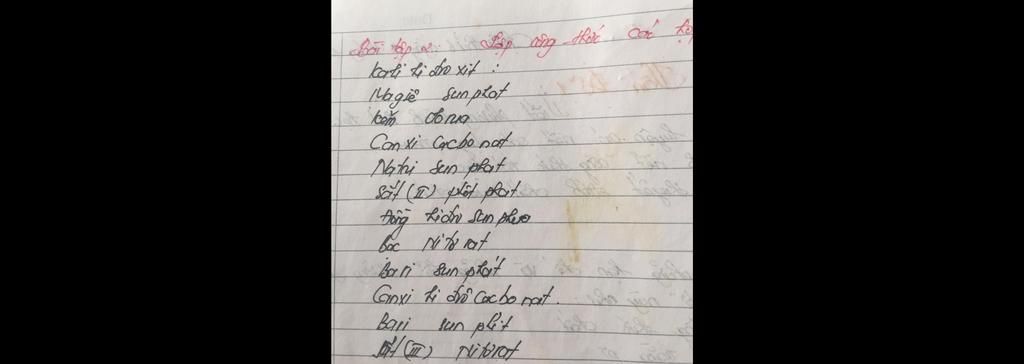 Bài tập 2. Lập công thức các hợ
Kali hi đro xit :
Magiê sunphat
kẽm clorua
Canxi Cacbo nat
Natri sun phat
sắt (II) phốt phat
Đồng hiđro sun phua
bạc Ni tơ rat
Bari sun phát
Canxi hi đrô Cacbo nat.
Bari sun phit
sắt (III) Nitơrat